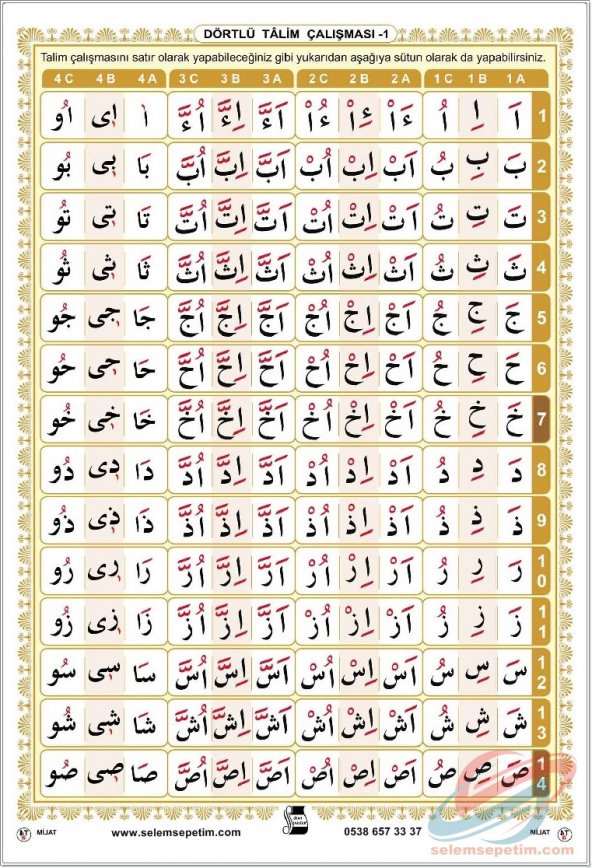 DÖRTLÜ TÂLİM ÇALIŞMASI -1
Talim çalışmasını satır olarak yapabileceğiniz gibi yukarıdan aşağıya sütun olarak da yapabilirsiniz.
4 C 4 B 4 A 3 C 3 B 3 A 2 C 2 B 2 A 1 C 1 B 1 A
1 اَ اِ اُ ءَاْ ءِاْ ءُاْ اَءَّ اِءَّ اُءَّ ا اٖى اُو
2 بَ بِ بُ اَبْ اِبْ اُبْ اَبَّ اِبَّ اُبَّ بَا بٖى بُو
3 تَ تِ تُ اَتْ اِتْ اُتْ اَتَّ اِتَّ اُتَّ تَا تٖى تُو
4 ثَ ثِ ثُ اَثْ اِثْ اُثْ اَثَّ اِثَّ اُثَّ ثَا ثٖى ثُو
5 جَ جِ جُ اَجْ اِجْ اُجْ اَجَّ اِجَّ اُجَّ جَا جٖى جُو
6 حَ حِ حُ اَحْ اِحْ اُحْ اَحَّ اِحَّ اُحَّ حَا حٖى حُو
7 خَ خِ خُ اَخْ اِخْ اُخْ اَخَّ اِخَّ اُخَّ خَا خٖى خُو
8 دَ دِ دُ اَدْ اِدْ اُدْ اَدَّ اِدَّ اُدَّ دَا دٖى دُو
9 ذَ ذِ ذُ اَذْ اِذْ اُذْ اَذَّ اِذَّ اُذَّ ذَا ذٖى ذُو
10 رَ رِ رُ اَرْ اِرْ اُرْ اَرَّ اِرَّ اُرَّ رَا رٖى رُو
11 زَ زِ زُ اَزْ اِزْ اُزْ اَزَّ اِزَّ اُزَّ زَا زٖى زُو
12 سَ سِ سُ اَسْ اِسْ اُسْ اَسَّ اِسَّ اُسَّ سَا سٖى سُو
13 شَ شِ شُ اَشْ اِشْ اُشْ اَشَّ اِشَّ اُشَّ شَا شٖى شُو
14 صَ صِ صُ اَصْ اِصْ اُصْ اَصَّ اِصَّ اُصَّ صَا صٖى صُو
MİJAT www.selemsepetim.com 0538 657 33 37 MİJAT
selemsepetim.com